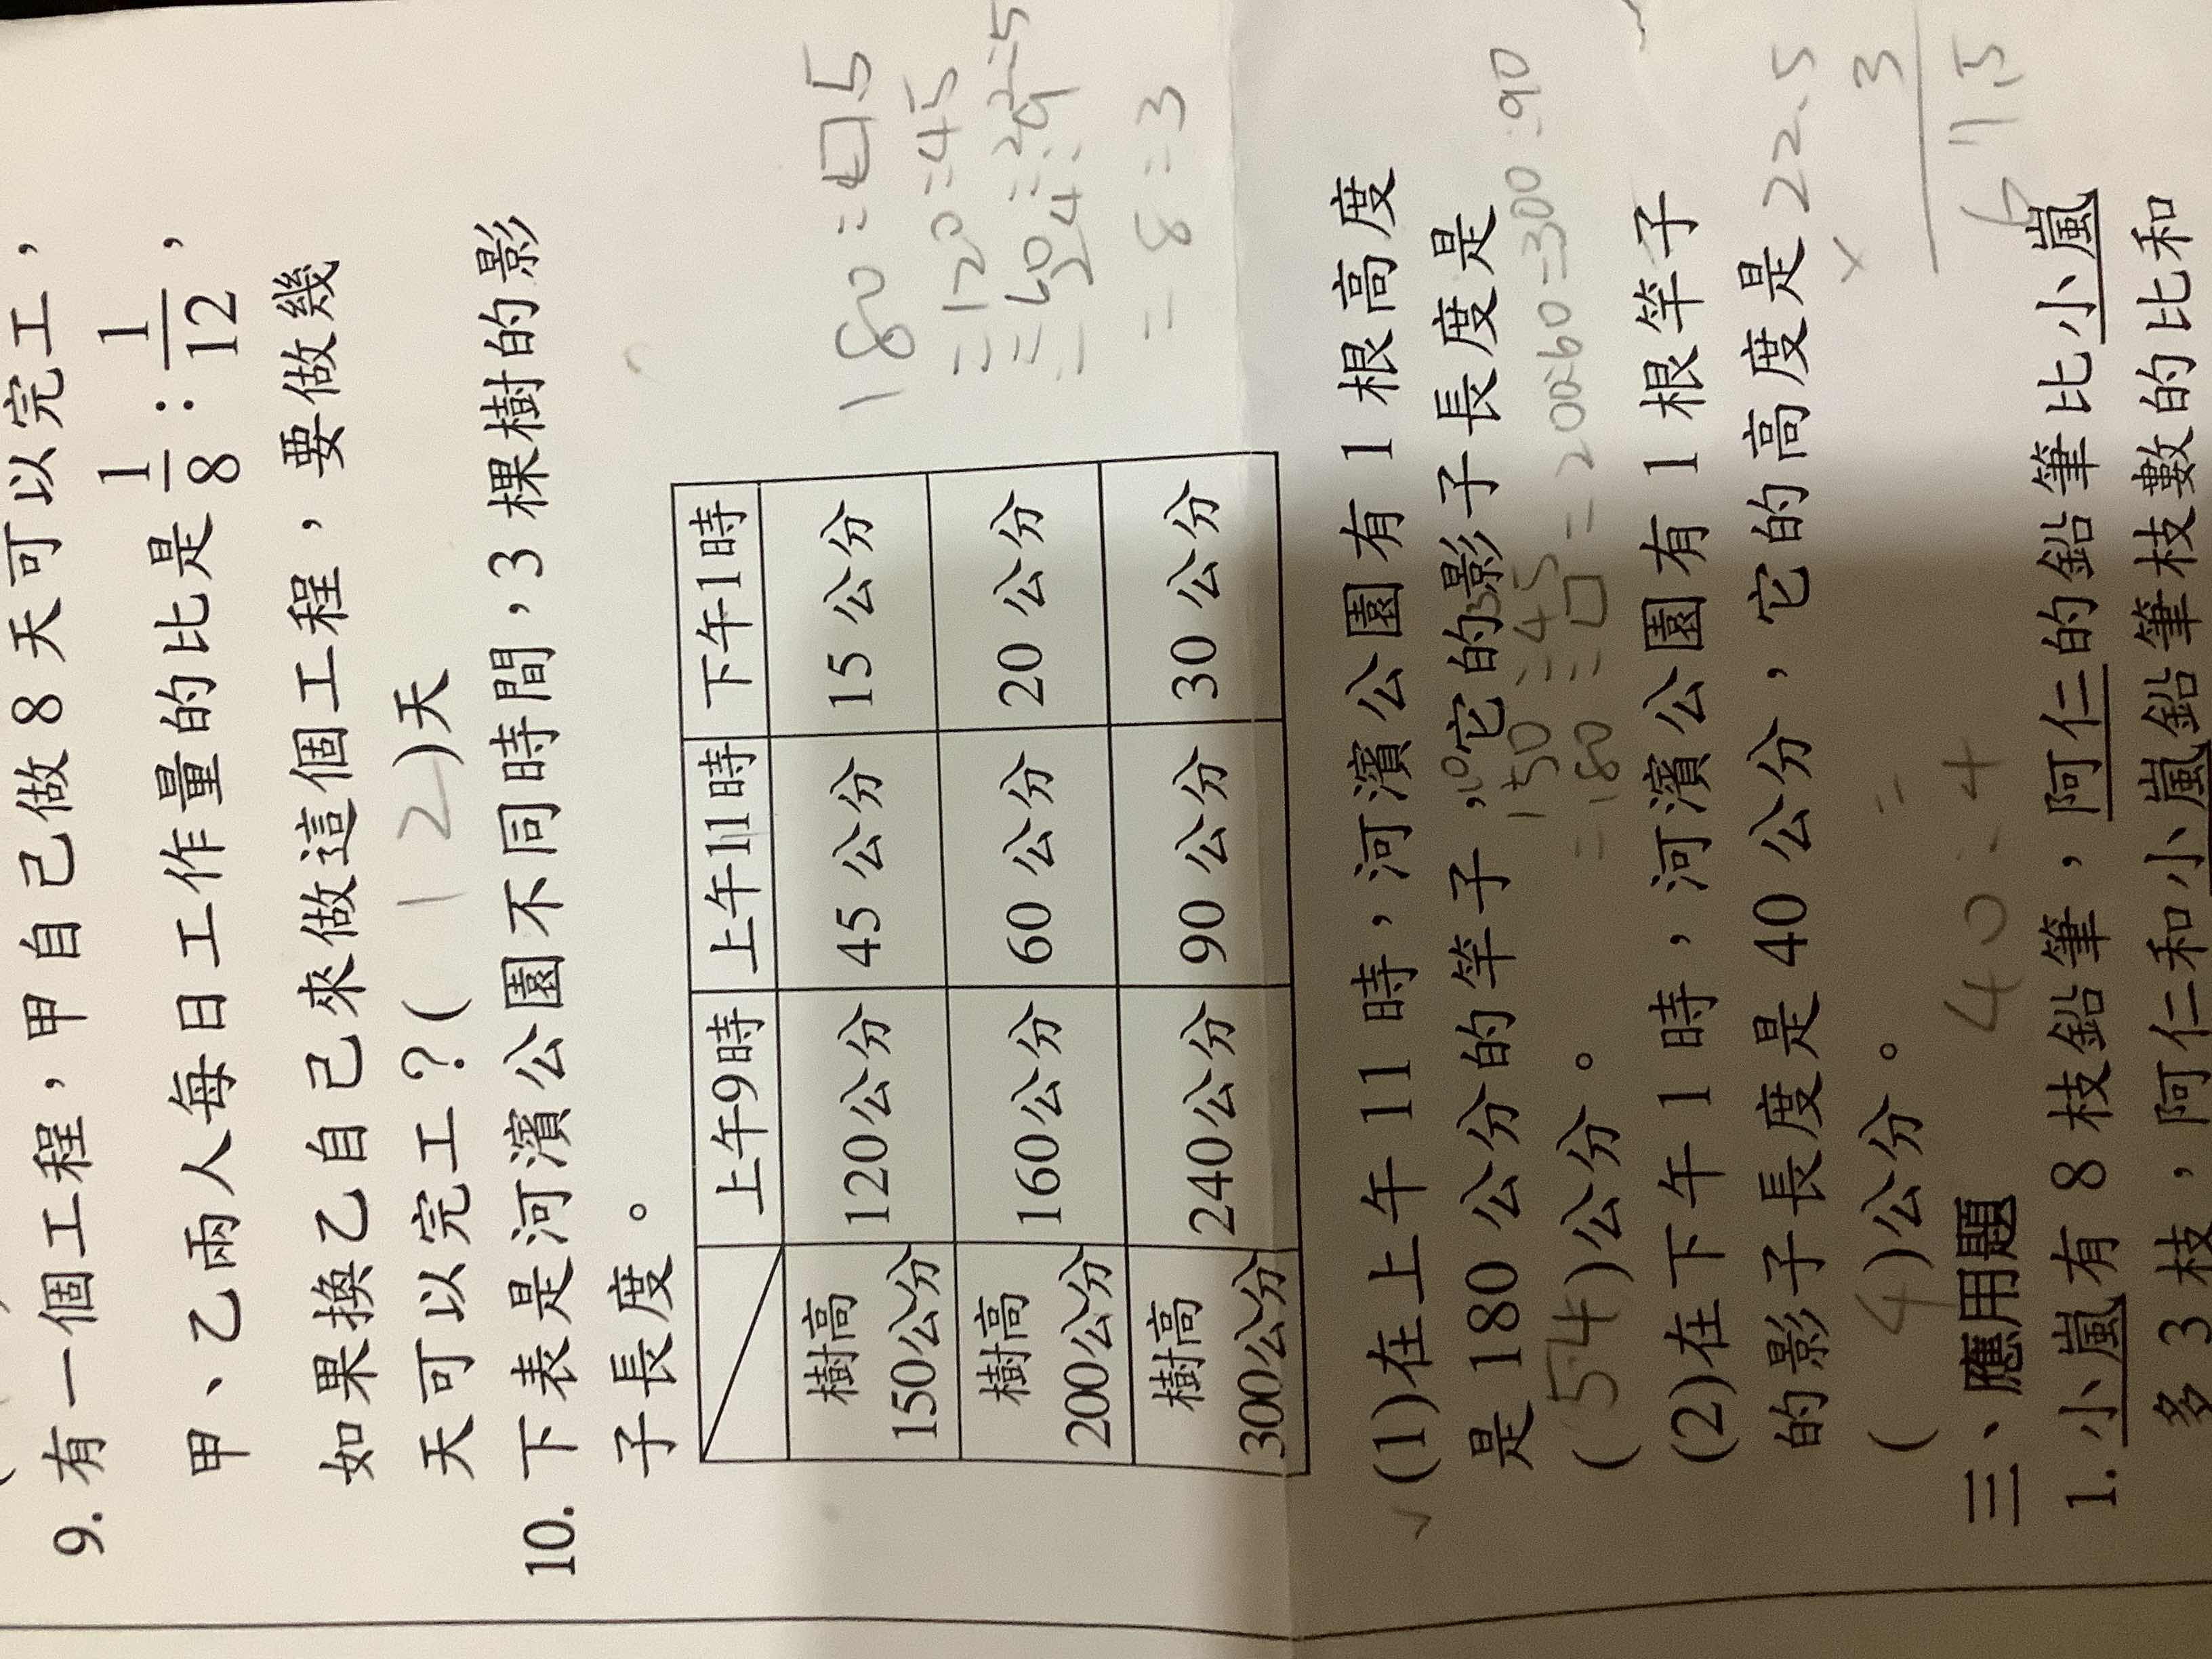 9. 有一個工程，甲自己做 8 天可以完工，
甲、乙兩人每日工作量的比是 1/8：1/12，
如果換乙自己來做這個工程，要做幾
天可以完工？( 12 )天
10. 下表是河濱公園不同時間，3 棵樹的影
子長度。
上午9時 上午11時 下午1時
樹高 150公分 120公分 45 公分 15 公分
樹高 200公分 160公分 60 公分 20 公分
樹高 300公分 240公分 90 公分 30 公分
=120:45
=8:3
(1)在上午 11 時，河濱公園有 1 根高度
是 180 公分的竿子，它的影子長度是
150:45=200:60=300:90
=180:□
( 54 )公分。
(2)在下午 1 時，河濱公園有 1 根竿子
的影子長度是 40 公分，它的高度是
( 4 )公分。
22.5
× 3
40:4
三、應用題
1. 小嵐有 8 枝鉛筆，阿仁的鉛筆比小嵐
多 3 枝，阿仁和小嵐鉛筆枝數的比和